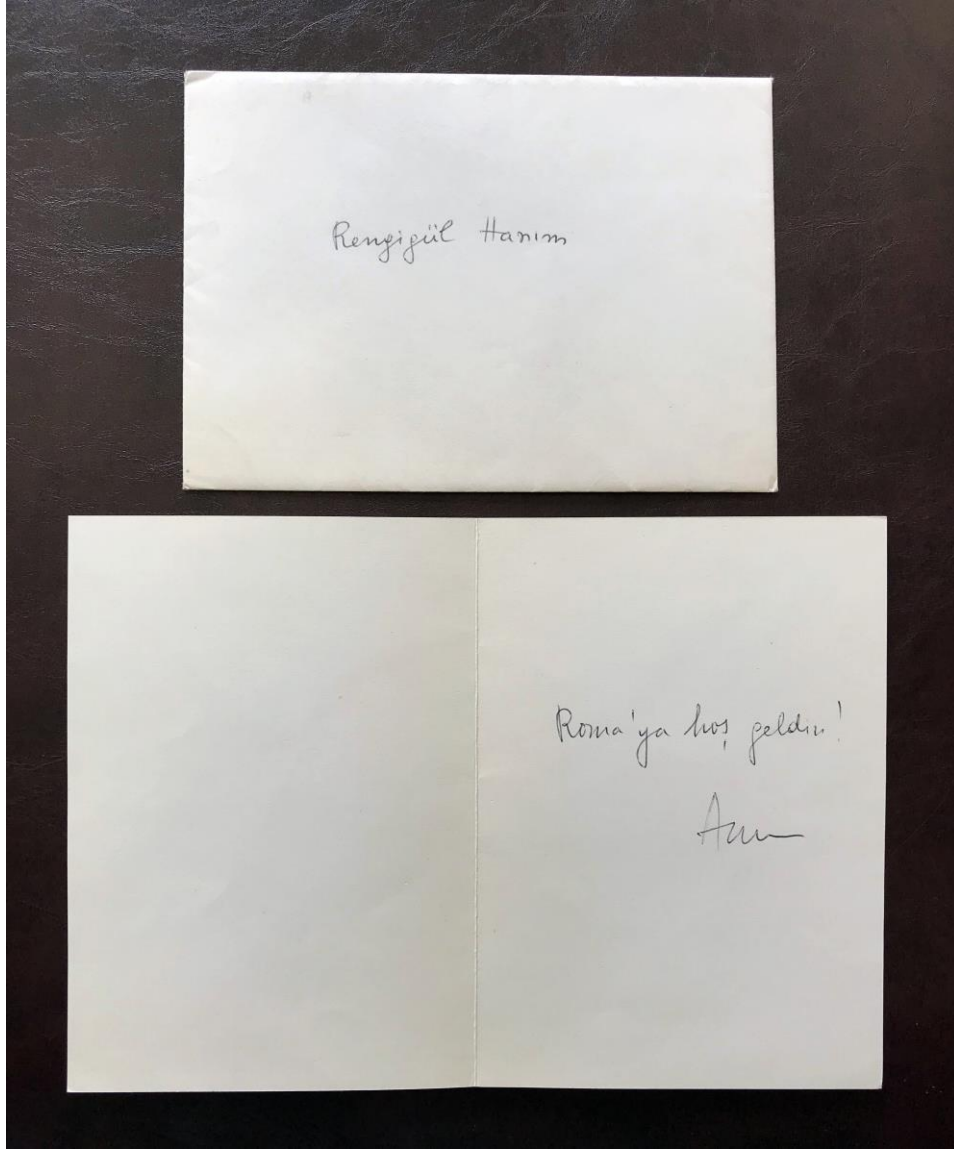 Rengigül Hanım
Roma'ya hoş geldin!